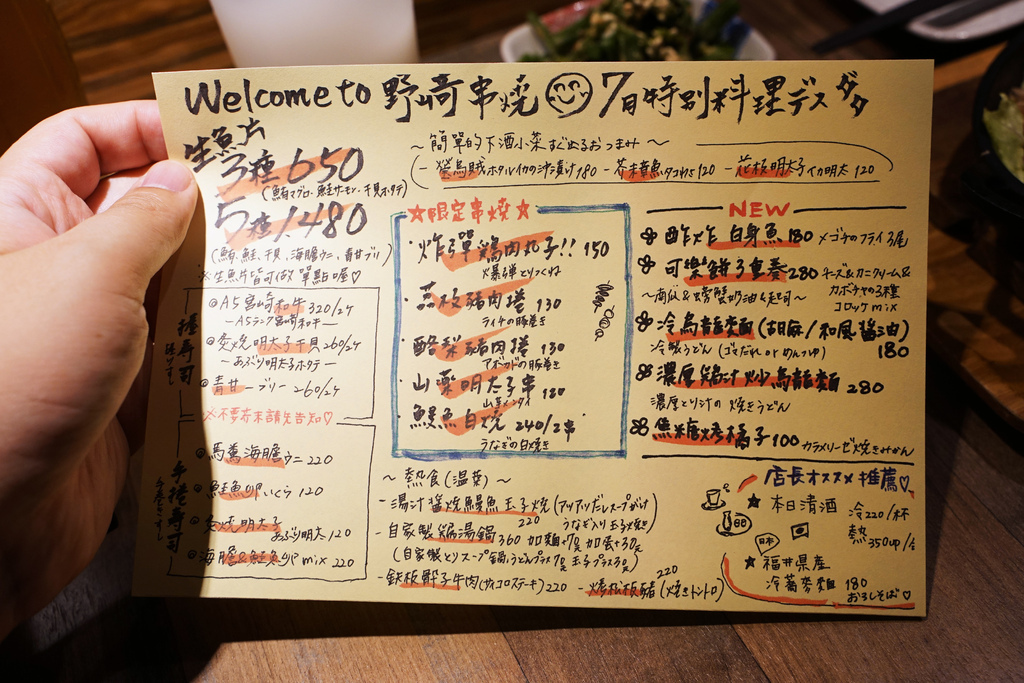 Welcome to 野崎串燒 7月特別料理デス ダダ
生魚片
3種 650
(鮪マグロ、鮭サーモン、干貝ホタテ)
5種 1480
(鮪、鮭、干貝、海膽ウニ、青甘ブリ)
※生魚片皆可做單點喔♡
握壽司
A5宮崎和牛 320/2貫
—A5ランク宮崎和牛—
炙燒明太子干貝 260/2貫
—あぶり明太ホタテ—
青甘—ブリ— 260/2貫
※不要芥末請先告知♡
手捲壽司
馬糞海膽ウニ 220
鮭魚卵いくら 120
炙燒明太子 あぶり明太 120
海膽&鮭魚卵 mix 220
~簡單的下酒小菜 すぐ出るおつまみ~
-螢烏賊ホタルイカの沖漬け 180 -芥末章魚タコわさ 120 -花枝明太子イカ明太 120
☆限定串燒☆
・炸彈雞肉丸子!! 150
爆弾とりつくね
・荔枝豬肉塔 130
ライチの豚巻き
・酪梨豬肉塔 130
アボカドの豚巻き
・山藥明太子串 180
山芋メンタイ
・鰻魚白燒 240/2串
うなぎの白焼き
~熱食(温菜)~
-湯汁醬燒鰻魚玉子燒(アツアツだしスープがけ
220 うなぎ入り玉子焼き)
-自家製雞湯鍋 360 加麵+70元 加蛋+30元
(自家製とりスープ鍋、うどんプラス70元 玉子プラス30元)
-鉄板骰子牛肉(サイコロステーキ) 220 -烤松板豬(焼きトントロ) 220
NEW
酥炸白身魚 180 メゴチのフライ3尾
可樂餅3重奏 280 チーズ&カニクリーム&
~南瓜&螃蟹奶油&起司~ カボチャの3種
コロッケmix
冷烏龍麵(胡麻/和風醬油)
冷製うどん(ゴマだれorめんつゆ) 180
濃厚雞汁炒烏龍麵 280
濃厚とり汁の焼きうどん
焦糖烤橘子 100 カラメリーゼ焼きみかん
店長オススメ推薦♡
★本日清酒 冷220/杯
熱350/合
日本
★福井県産
冷蕎麥麵 180
おろしそば♡